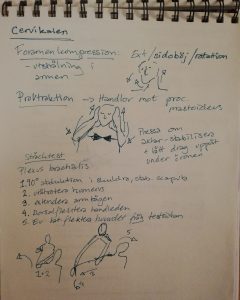 Cervikalen
Foramenkompression:
- utstrålning i
armen
Ext/sidoböj/rotation
Provtraktion → Händer mot proc.
mastoideus
Pressa om
axlar - stabilisera
+ lätt drag uppåt
under öronen
Sträcktest
Plexus brachialis
1. 90° abduktion i skuldra, stab. scapula
2. Utåtrotera humerus
3. Extendera armbågen
4. Dorsalflektera handleden
5. Ev låt flektera huvudet från testsidan
1+2
3
4
5